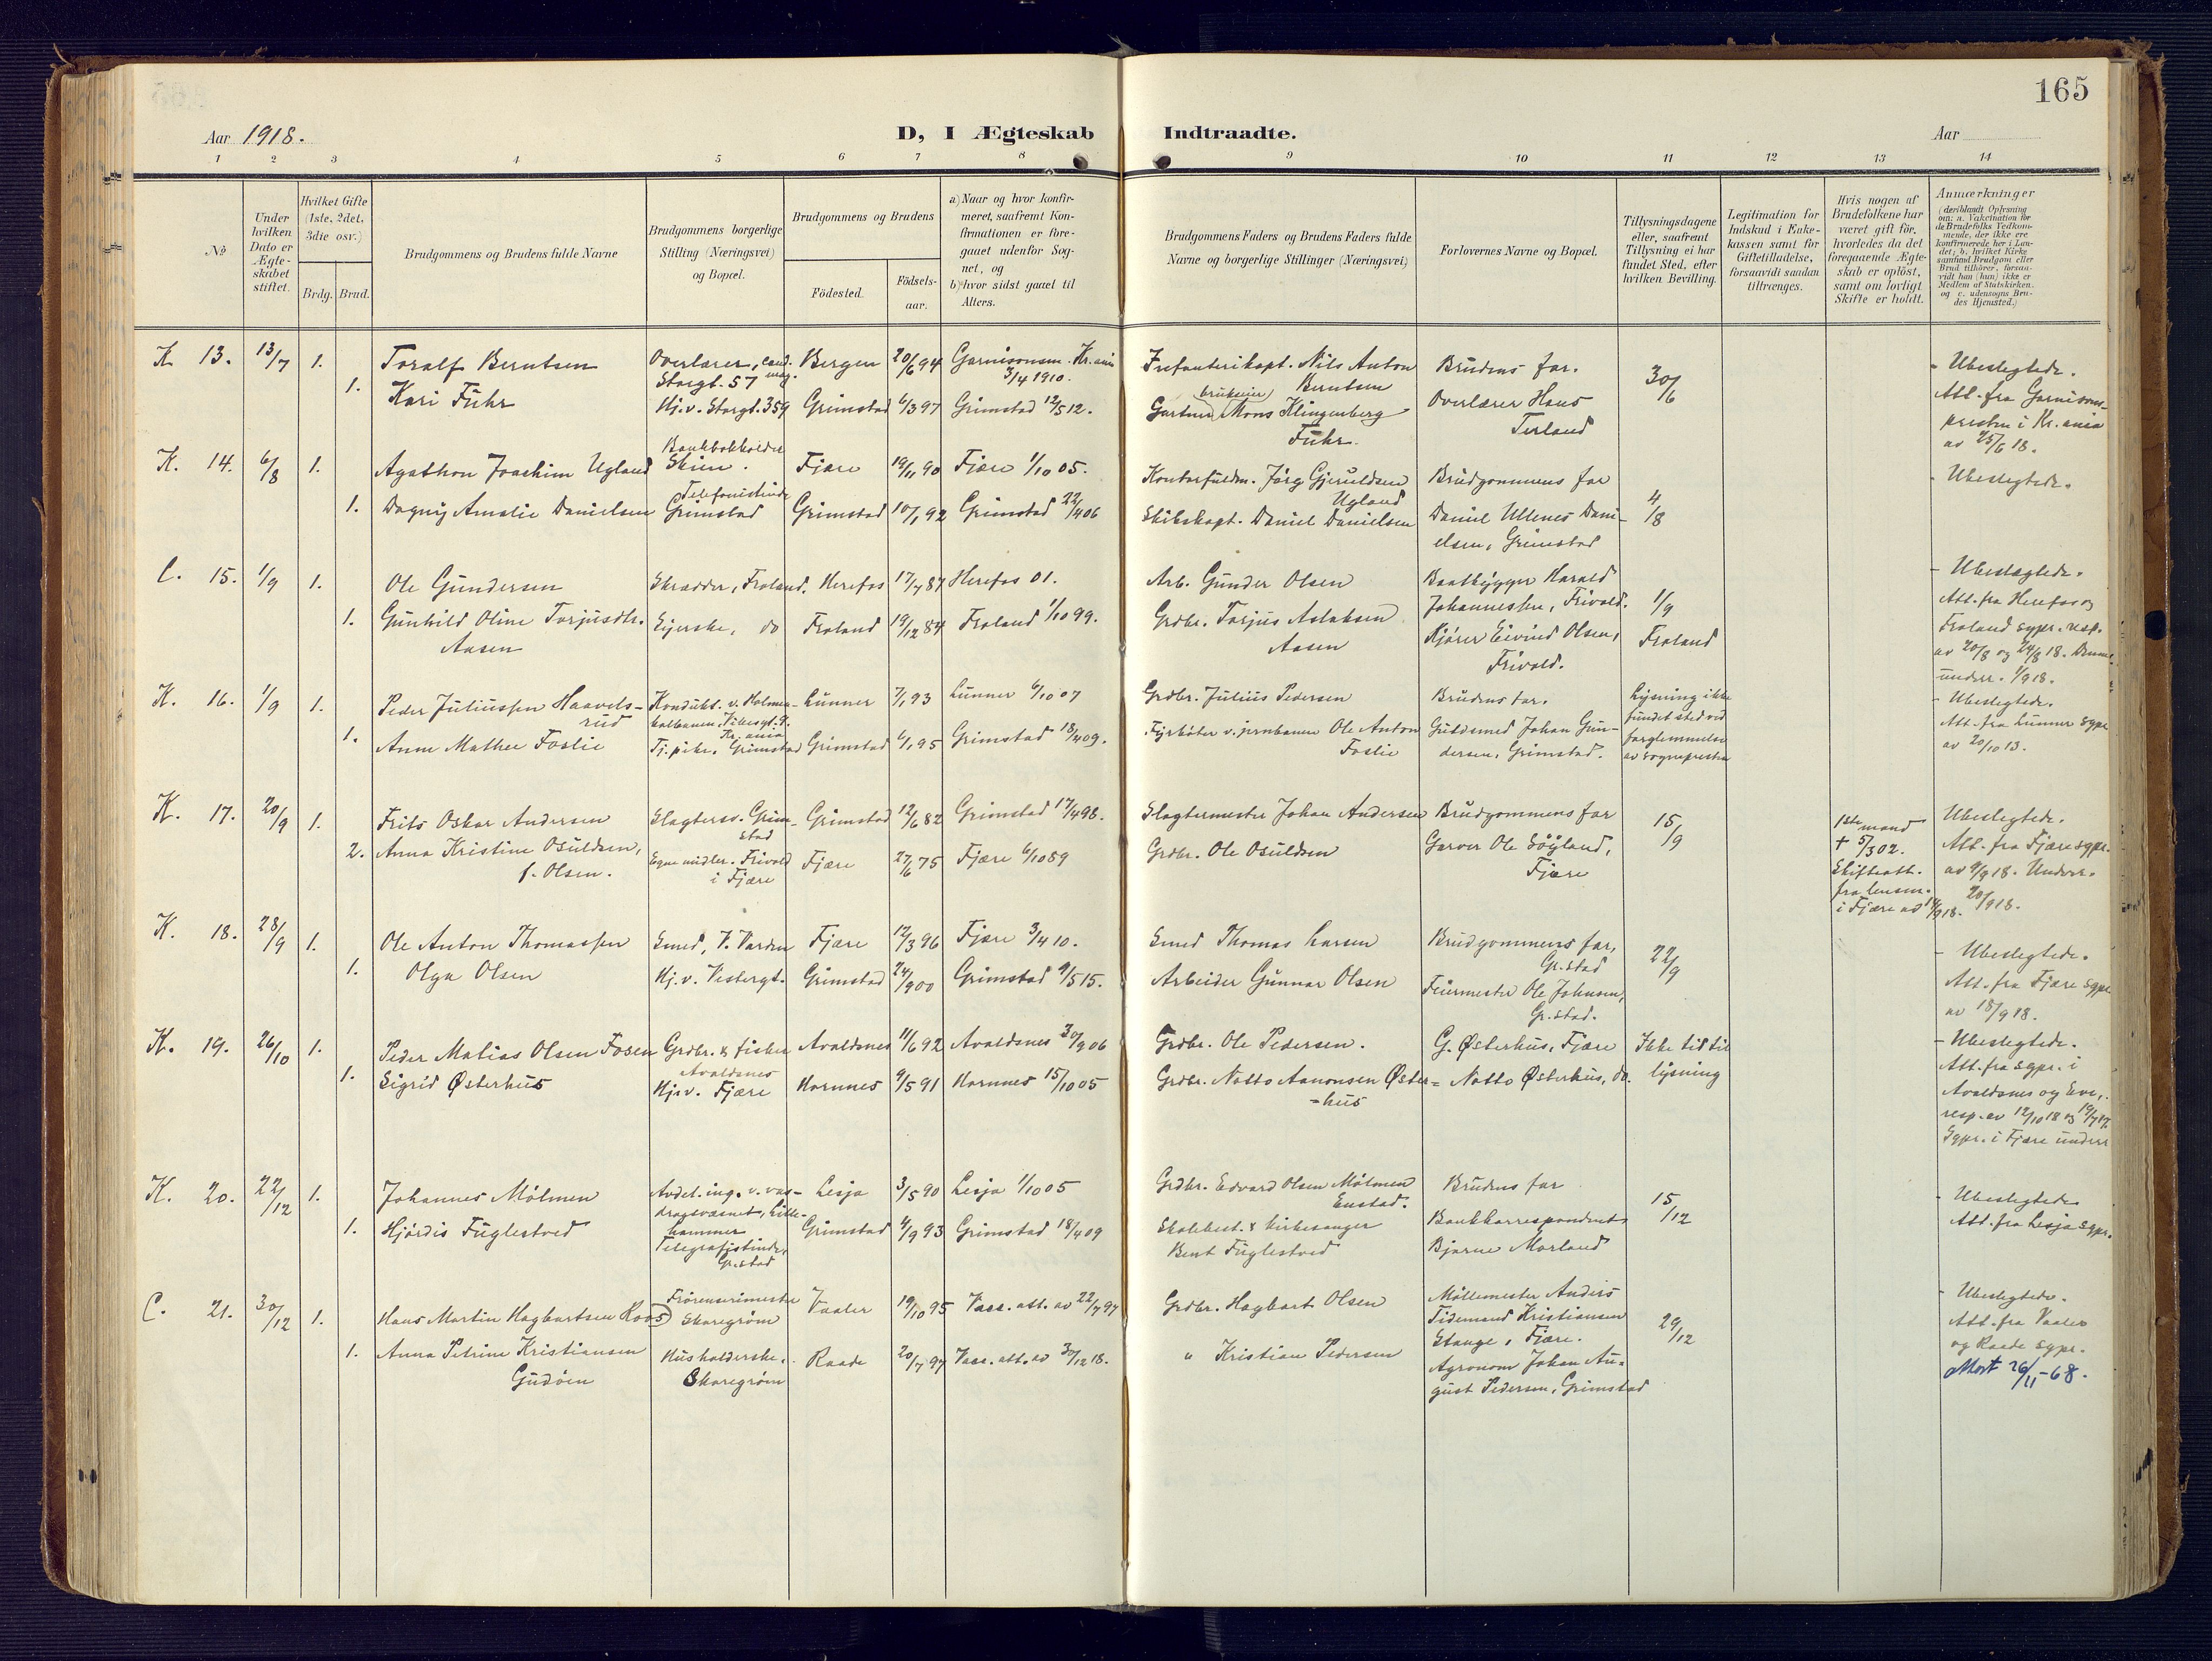 165
Aar 1918.
D, I Ægteskab Indtraadte.
Aar
1 2 3 4 5 6 7 8 9 10 11 12 13 14
No
Under hvilken Dato er Ægteskabet stiftet.
Hvilket Gifte (1ste, 2det, 3die osv.)
Brdg. Brud.
Brudgommens og Brudens fulde Navne
Brudgommens borgerlige Stilling (Næringsvei) og Bopæl.
Brudgommens og Brudens
Födested.
Födsels-aar.
a) Naar og hvor konfirmeret, saafremt Konfirmationen er foregaaet udenfor Sognet, og
b) hvor sidst gaaet til Alters.
Brudgommens Faders og Brudens Faders fulde Navne og borgerlige Stillinger (Næringsvei)
Forlovernes Navne og Bopæl.
Tillysningsdagene eller, saafremt Tillysning ei har fundet Sted, efter hvilken Bevilling.
Legitimation for Indskud i Enkekassen samt for Giftetilladelse, forsaavidt saadan tiltrænges.
Hvis nogen af Brudefolkene har været gift før, hvorledes da det foregaaende Ægteskab er oplöst, samt om lovligt Skifte er holdt.
Anmærkninger
(deriblandt Oplysning om: a. Vakcination for de Brudefolks Vedkommende, der ikke ere konfirmerede her i Landet; b. hvilket Kirkesamfund Brudgom eller Brud tilhører, forsaavidt han (hun) ikke er Medlem af Statskirken. og c. udensogns Brudes Hjemsted.)
K 13. 13/7 1. Toralf Berntsen Overlærer, cand. mag. Storgt. 57 Bergen 20/6 94 Garnisonsm. Kr.ania 3/4 1910. Infanterikapt. Nils Anton Berntsen Brudens far. 30/6 - Ubeslegtede.
1. Kari Fuhr Hj.v. Storgt. 359 Grimstad 6/3 97 Grimstad 12/5 12. Gartner (brukeier) Mons Klingenberg Fuhr. Overlærer Hans Terland Att. fra Garnisons-
presten i Kr.ania
av 25/6 18.
K. 14. 6/8 1. Agathon Joachim Ugland Bankbokholder Skien. Fjære 19/11 90 Fjære 1/10 05. Kontorfuldm. Jörg Gjeruldsen Ugland Brudgommens far 4/8 - Ubeslegtede.
1. Dagny Amalie Danielsen Telefonistinde Grimstad Grimstad 10/1 92 Grimstad 22/4 06 Skibskapt. Daniel Danielsen Daniel Ullenes Dani-
elsen, Grimstad
C. 15. 1/9 1. Ole Gundersen Skrædder, Froland. Herefos 17/7 87 Herefos 01. Arb. Gunder Olsen Baatbygger Harald Johannessen, Frivold. 1/9 Froland - Ubeslægtede.
1. Gunhild Oline Torjusdtr. Aasen Eijerske, do Froland 19/12 84 Froland 1/10 99. Grdbr. Torjus Aslaksen Aasen Kjörer Eivind Olsen, Frivold. Att. fra Herefos og
Froland sgpr. resp.
av 20/8 og 24/8 18. Denne
underr. 1/9 18.
K. 16. 1/9 1. Peder Juliussen Haavels-
rud Kondukt. v. Holmen-
kolbanen, Vibesgt. 9. Kr.ania Lunner 7/1 93 Lunner 6/10 07 Grdbr. Julius Pedersen Brudens far. Lysning ikke
fundet sted ved
forglemmelse
av sognepresten - Ubeslegtede.
1. Anne Mathee Foslie Tj.pike, Grimstad Grimstad 6/1 95 Grimstad 18/4 09. Fyrböter v. jernbanen Ole Anton Foslie Guldsmed Johan Gun-
dersen, Grimstad. Att. fra Lunner sgpr
av 20/10 13.
K. 17. 20/9 1. Frits Oskar Andersen Slagtersv. Grim-
stad Grimstad 12/6 82 Grimstad 17/4 98. Slagtermester Johan Andersen Brudgommens far 15/9 1ste mand
+ 5/3 02.
Skifteatt.
fra lensm.
i Fjære av 14/9 18. Ubeslegtede.
2. Anna Kristine Osuldsen, f. Olsen. Egne midler. Frivold i Fjære Fjære 27/6 75 Fjære 6/10 89 Grdbr. Ole Osuldsen Garver Ole Söyland, Fjære Att. fra Fjære sgpr.
av 9/9 18. Underr.
20/9 18.
K. 18. 28/9 1. Ole Anton Thomassen Smed, V. Varden Fjære 12/3 96 Fjære 3/4 10. Smed Thomas Larsen Brudgommens far, Gr.stad 22/9 - Ubeslegtede.
1. Olga Olsen Hj.v. Vestergt. Grimstad 24/9 00 Grimstad 9/5 15. Arbeider Gunnar Olsen Feiermester Ole Johnsen, Gr.stad. Att. fra Fjære sgpr
av 18/9 18.
K. 19. 26/10 1. Peder Matias Olsen Fosen Grdbr. & fisker Avaldsnes Avaldsnes 11/6 92 Avaldsnes 30/9 06 Grdbr. Ole Pedersen. G. Østerhus, Fjære Ikke tid til
lysning - Ubeslegtede.
1. Sigrid Østerhus Hj.v. Fjære Hornnes 9/5 91 Hornnes 15/10 05 Grdbr. Notto Aanonsen Øster-
-hus Notto Østerhus, do. Att. fra sgpr. i
Avaldsnes og Eve,
resp. av 12/10 18 og 19/7 17.
Sgpr. i Fjære underr
K. 20. 22/12 1. Johannes Mölmen Avdel.ing. v. vas-
dragsvæsnet, Lille-
hammer Lesja 3/5 90 Lesja 1/10 05 Grdbr. Edvard Olsen Mölmen Enstad. Brudens far 15/12 - Ubeslegtede
1. Hjördis Fuglestved Telegrafistinde, Gr.stad Grimstad 4/9 93 Grimstad 18/4 09 Skolebest. & kirkesanger
Bent Fuglestved Bankkorrespondent
Bjarne Morland Att. fra Lesja sgpr.
C. 21. 30/12 1. Hans Martin Hagbartsen Roos Skaregröm Vaaler 19/10 95 Vacc. att. av 22/7 97 Grdbr. Hagbart Olsen Möllemester Anders
Tidemand Kristiansen
Stange, Fjære. 29/12 - Ubeslegtede.
1. Anna Petrine Kristiansen
Gudöen Husholderske, Skaregröm Raade 20/7 97 Vacc. att. av 30/12 18. " Kristian Pedersen Agronom Johan Au-
gust Pedersen, Grimstad Att. fra Vaaler
og Raade sgpr.
Attest 26/11-68.